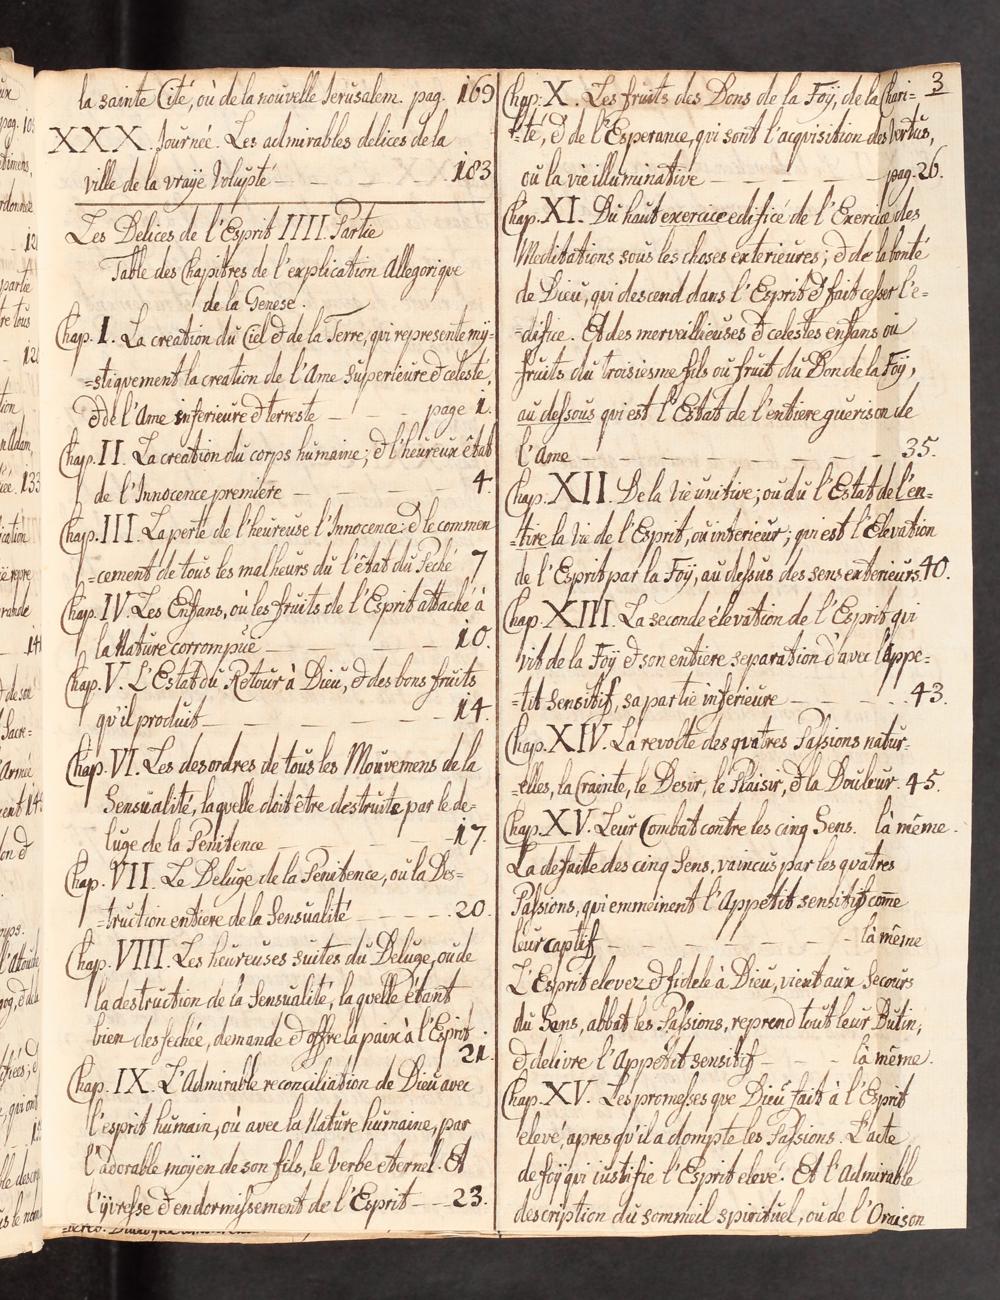 la sainte Cité, où de la nouvelle Jerusalem. pag. 169
XXX. Journée. Les admirables delices de la
ville de la vraÿe Volupté — — — — 183
Les Delices de l'Esprit IIII. Partie
Table des Chapitres de l'explication Allegorique
de la Genese.
Chap. I. La creation du Ciel & de la Terre, qui represente my-
=stiquement la creation de l'Ame superieure & celeste,
& de l'Ame inferieure & terreste — — — page 1.
Chap. II. La creation du corps humaine; & l'heureux êtat
de l'Innocence premiere — — — — 4.
Chap. III. La perte de l'heureuse l'Innocence: & le commen
=cement de tous les malheurs du l'état du Peché 7
Chap. IV. Les Enfans, où les fruits de l'Esprit attaché à
la Nature corrompüe — — — — 10.
Chap. V. L'Estat du Retour à Dieu, & des bons fruits
qu'il produit — — — — — 14.
Chap. VI. Les desordres de tous les Mouvemens de la
Sensualité, laquelle doit être destruite par le de-
luge de la Penitence — — — — 17.
Chap. VII. Le Deluge de la Penitence, ou la Des-
=truction entiere de la Sensualité — — — 20.
Chap. VIII. Les heureuses suites du Deluge, ou de
la destruction de la Sensualité, laquelle étant
bien dessechée, demande & offre la paix à l'Esprit
21.
Chap. IX. L'Admirable reconciliation de Dieu avec
l'esprit humain, où avec la Nature humaine, par
l'adorable moÿen de son fils, le Verbe eternel. Et
l'ÿvresse & endormissement de l'Esprit — — 23.
3
Chap. X. Les fruits des Dons de la Foÿ, de la Chari-
=té, & de l'Esperance, qui sont l'acquisition des Vertus,
ou la vie illuminative — — — — pag. 26.
Chap. XI. Du haut exercice edificé de l'Exercice des
Meditations sous les choses exterieures; & de la bonté
de Dieu, qui descend dans l'Esprit & fait cesser l'e-
=difice. Et des merveillieuses & celestes enfans ou
fruits du troisiesme fils ou fruit du Don de la Foÿ,
au dessous qui est l'Estat de l'entiere guerison de
l'Ame — — — — — — 35.
Chap. XII. De la Vie unitive; ou du l'Estat de l'en-
=tire la Vie de l'Esprit, ou interieur; qui est l'Elevation
de l'Esprit par la Foÿ, au dessus des sens exterieurs. 40.
Chap. XIII. La seconde élevation de l'Esprit qui
vit de la Foÿ & son entiere separation d'avec l'Appe-
=tit sensitif, sa partie inferieure — — — 43.
Chap. XIV. La revolte des quatres Passions natur-
=elles, la Crainte, le Desir, le Plaisir, & la Douleur. 45.
Chap. XV. Leur Combat contre les cinq Sens. là même.
La defaite des cinq Sens, vaincus par les quatres
Passions, qui emmeinent l'Appetit sensitif com̄e
leur captif — — — — — — là même
L'Esprit elevez & fidele à Dieu, vient aux Secours
du Sens, abbat les Passions, reprend tout leur Butin,
& delivre l'Appétit sensitif — — — là même.
Chap. XV. Les promesses que Dieu fait à l'Esprit
elevé, apres qu'il a dompte les Passions. L'acte
de foÿ qui iustifie l'Esprit elevé. Et l'Admirable
description du sommeil spirituel, ou de l'Oraison